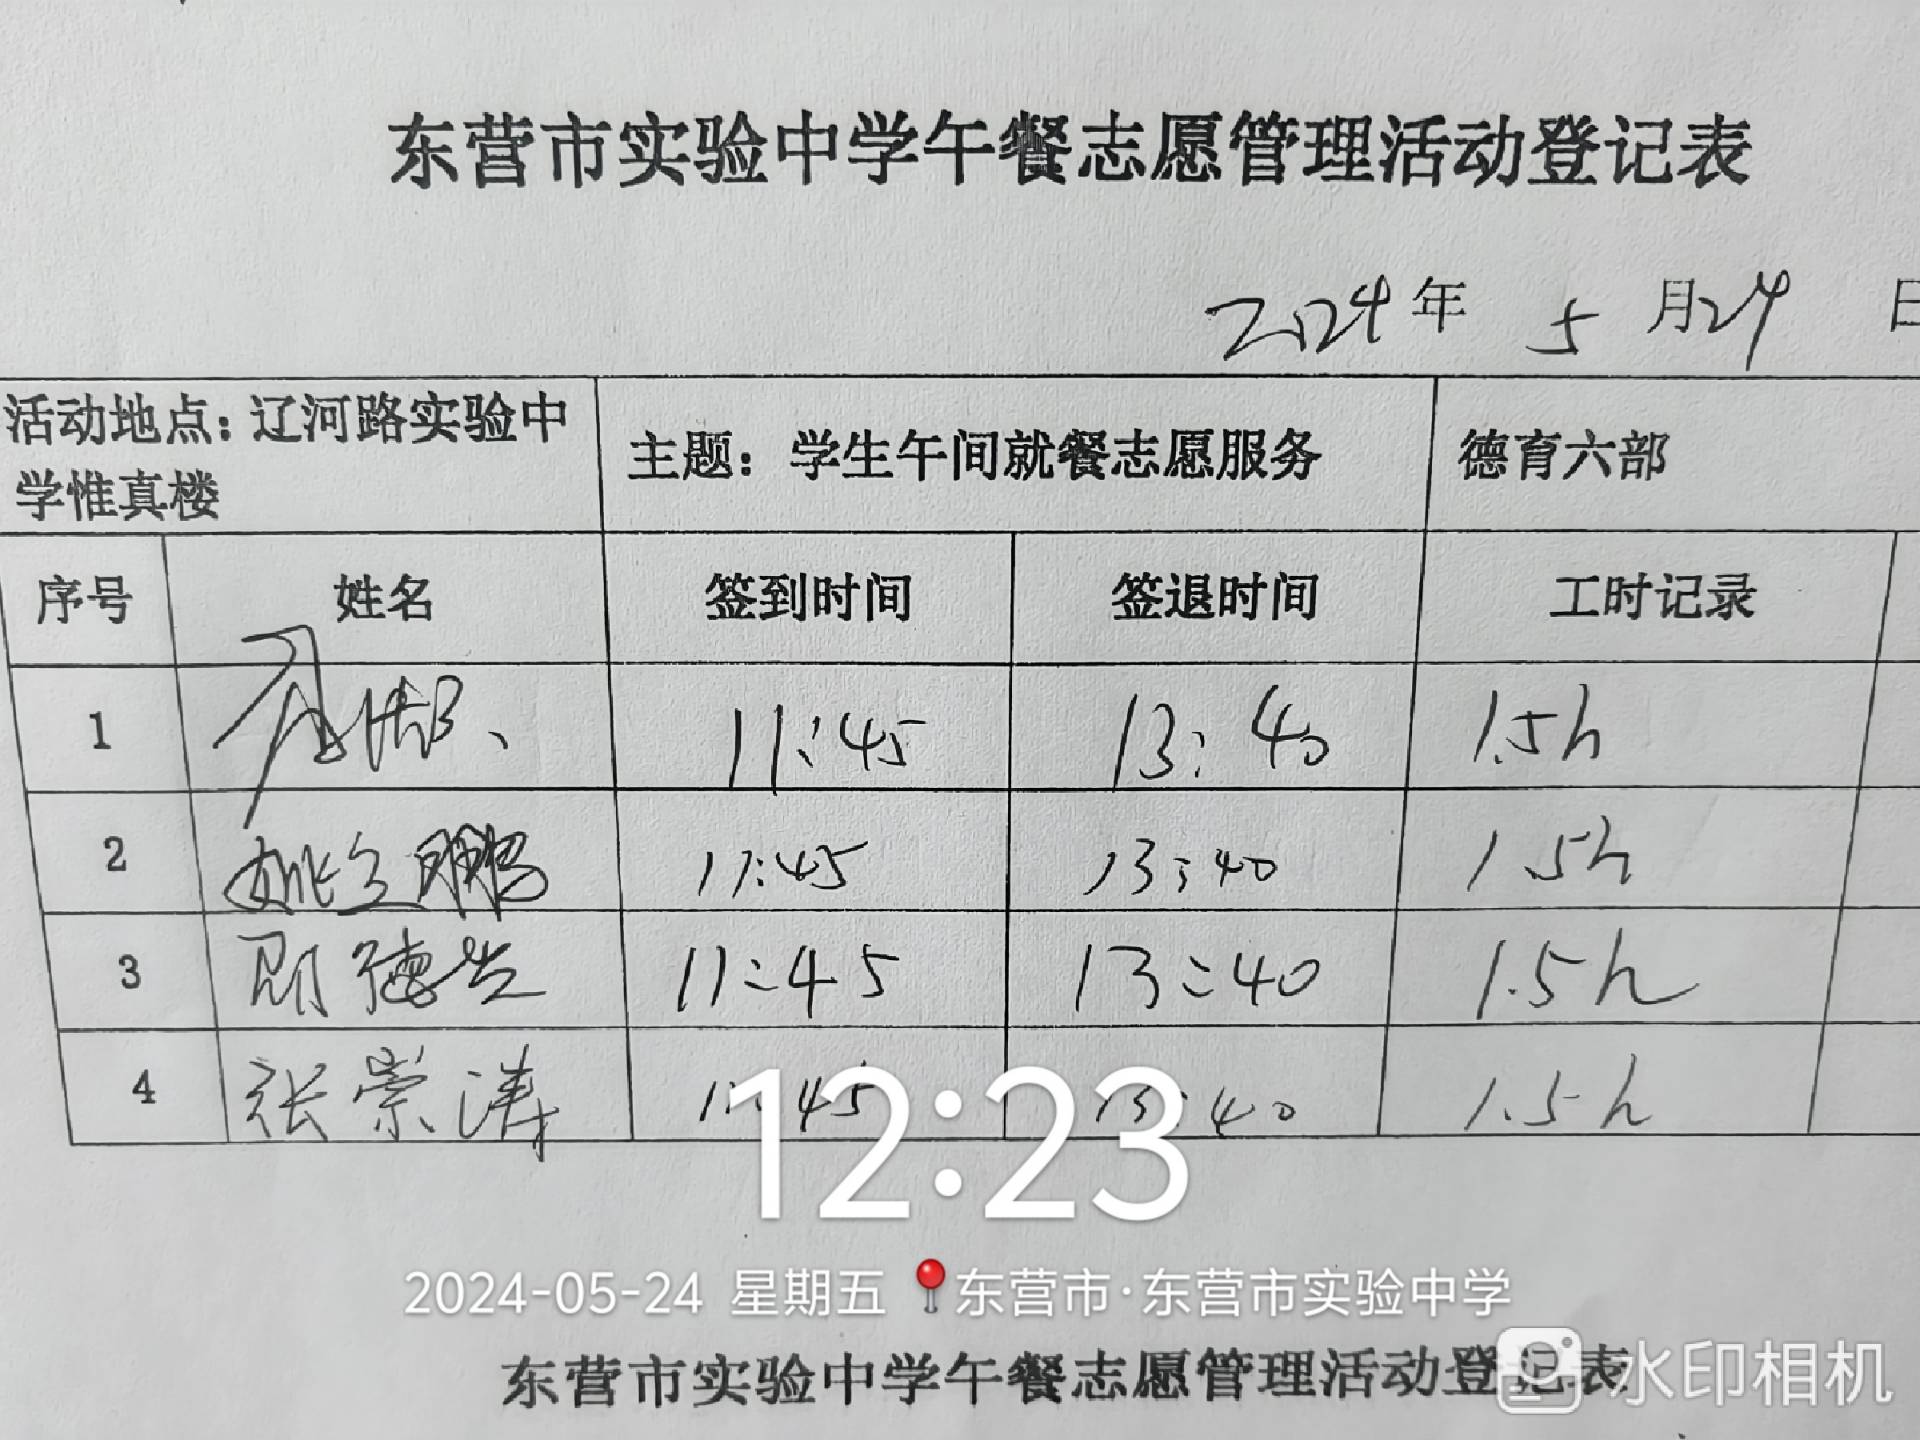 东营市实验中学午餐志愿管理活动登记表
2024年 5月24日
活动地点：辽河路实验中
学惟真楼
主题：学生午间就餐志愿服务
德育六部
序号 姓名 签到时间 签退时间 工时记录
1 11:45 13:40 1.5h
2 姚立鹏 11:45 13:40 1.5h
3 德 11:45 13:40 1.5h
4 张崇涛 11:45 13:40 1.5h
12:23
2024-05-24 星期五 东营市·东营市实验中学
东营市实验中学午餐志愿管理活动登记表
水印相机